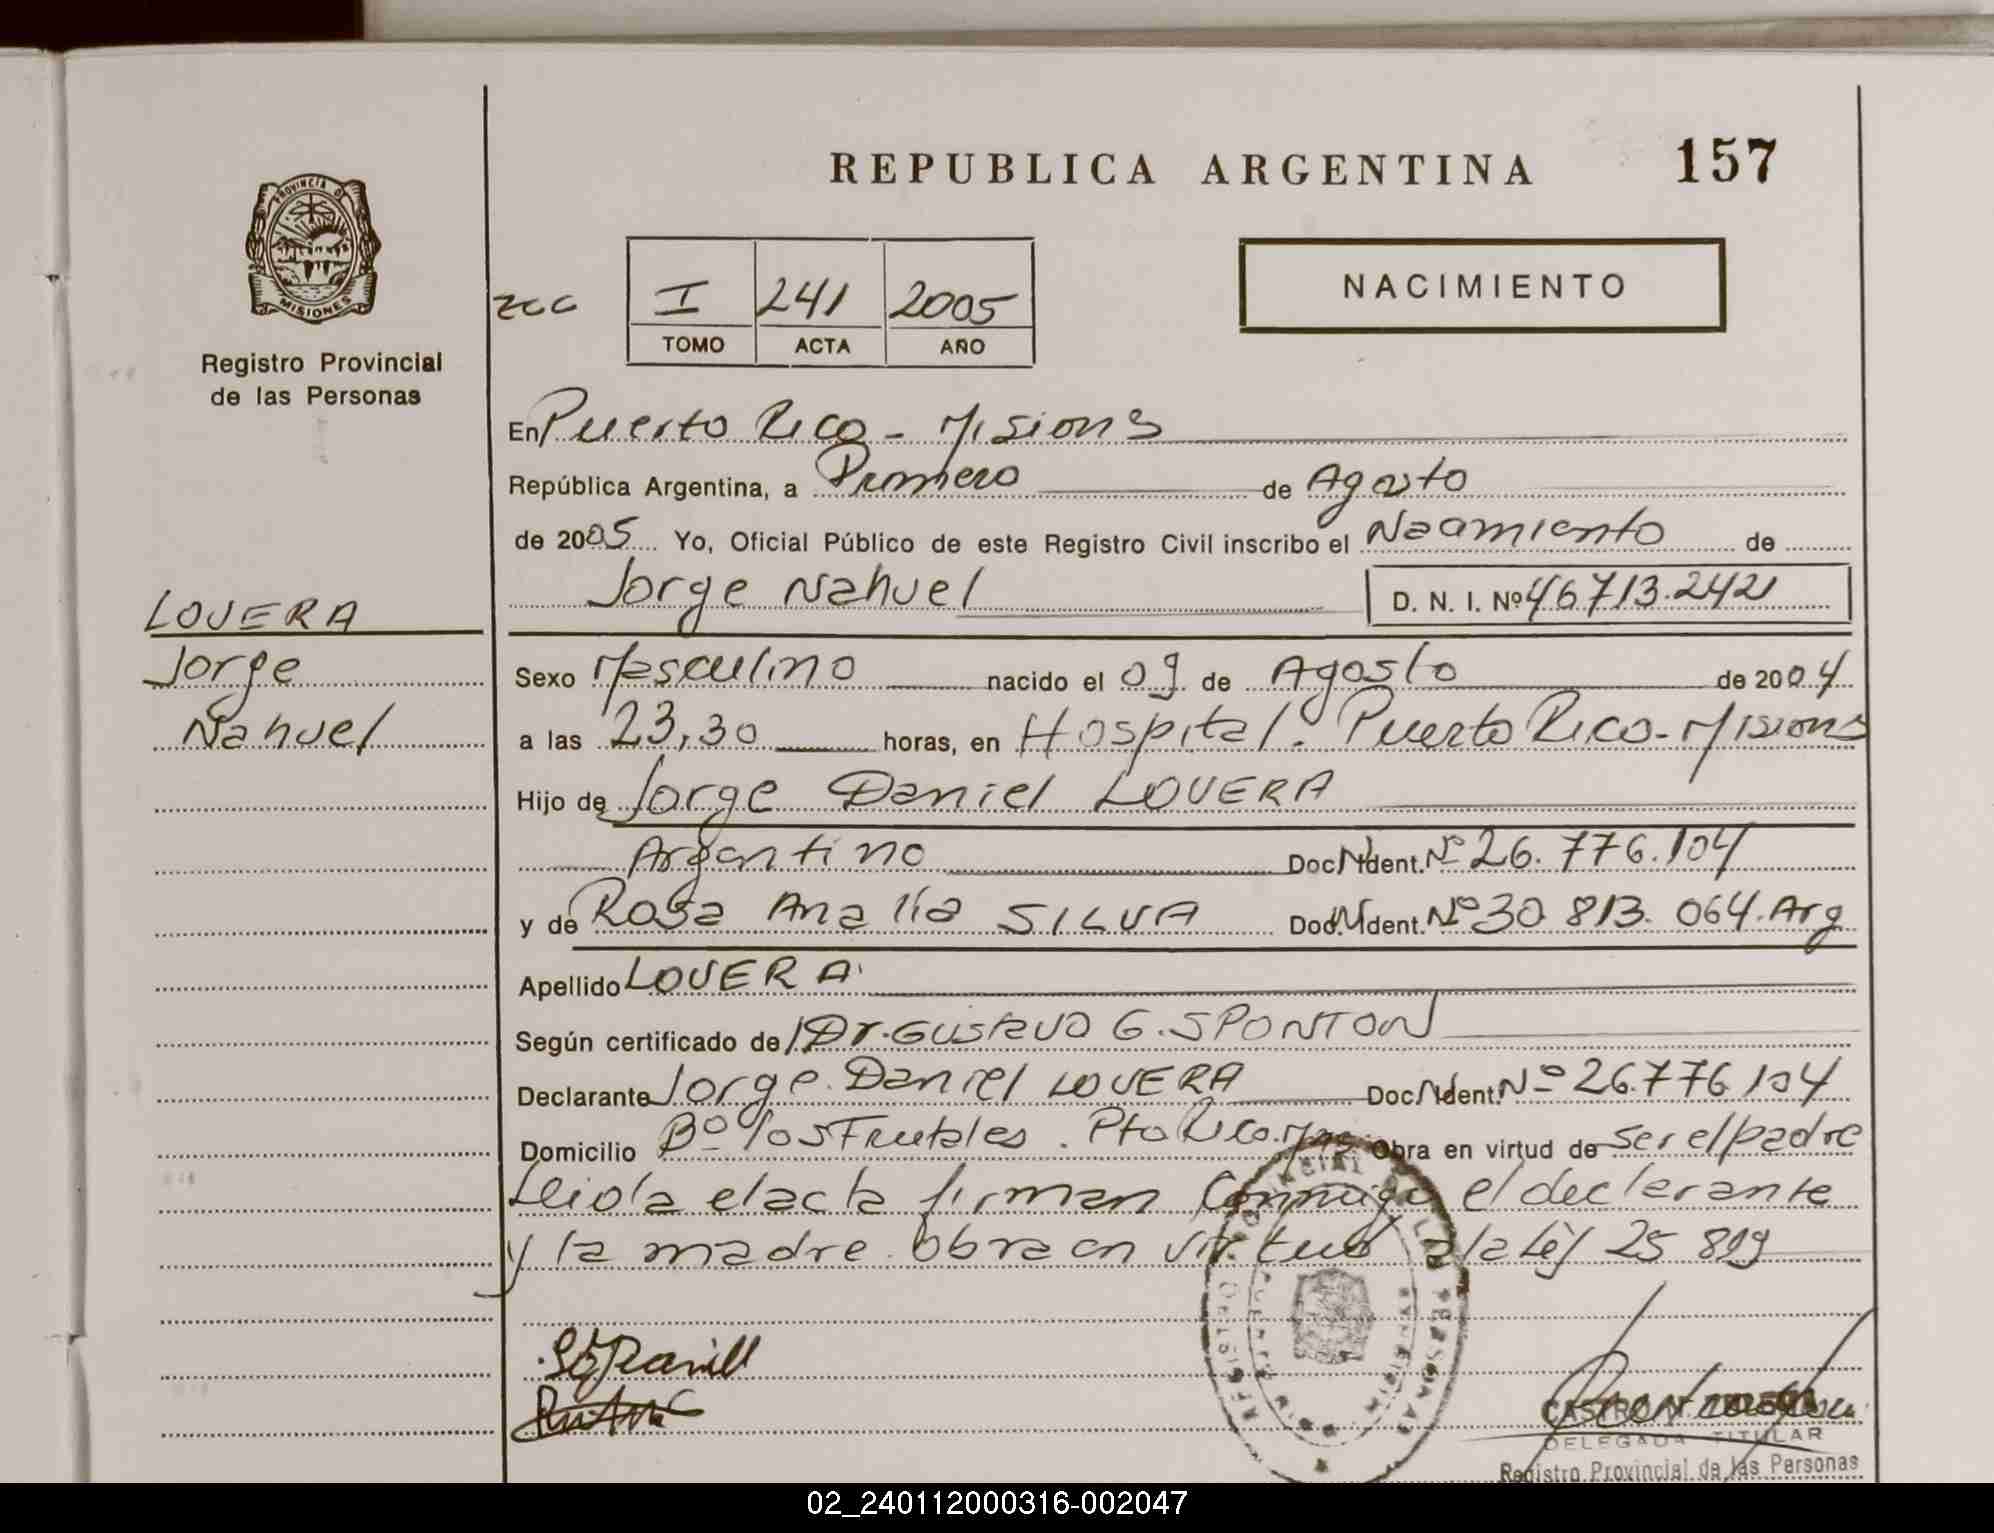 REPUBLICA ARGENTINA 157
PROVINCIA DE
MISIONES
Registro Provincial
de las Personas
I 241 2005
TOMO ACTA AÑO
NACIMIENTO
En Puerto Rico - Misiones
República Argentina, a Primero de Agosto
de 2005 Yo, Oficial Público de este Registro Civil inscribo el Nacimiento de
Jorge Nahuel D. N. I. Nº 46713.242
LOVERA
Jorge
Nahuel
Sexo Masculino nacido el 09 de Agosto de 2004
a las 23,30 horas, en Hospital. Puerto Rico - Misiones
Hijo de Jorge Daniel LOVERA
Argentino Doc. N. Ident. Nº 26.776.104
y de Rosa Analía SILVA Doc. N. Ident. Nº 30 813. 064. Arg
Apellido LOVERA
Según certificado de Dr. Gustavo G. SPONTON
Declarante Jorge Daniel LOVERA Doc. N. Ident. Nº 26.776.104
Domicilio Bº los Frutales. Pto Rico. Mnes Obra en virtud de ser el padre
Leida el acta firman Conmigo el declarante
y la madre. Obra en virtud a la Ley 25 819
REGISTRO PROVINCIAL DE LAS PERSONAS
DELEGADA TITULAR
Registro Provincial de las Personas
02_240112000316-002047